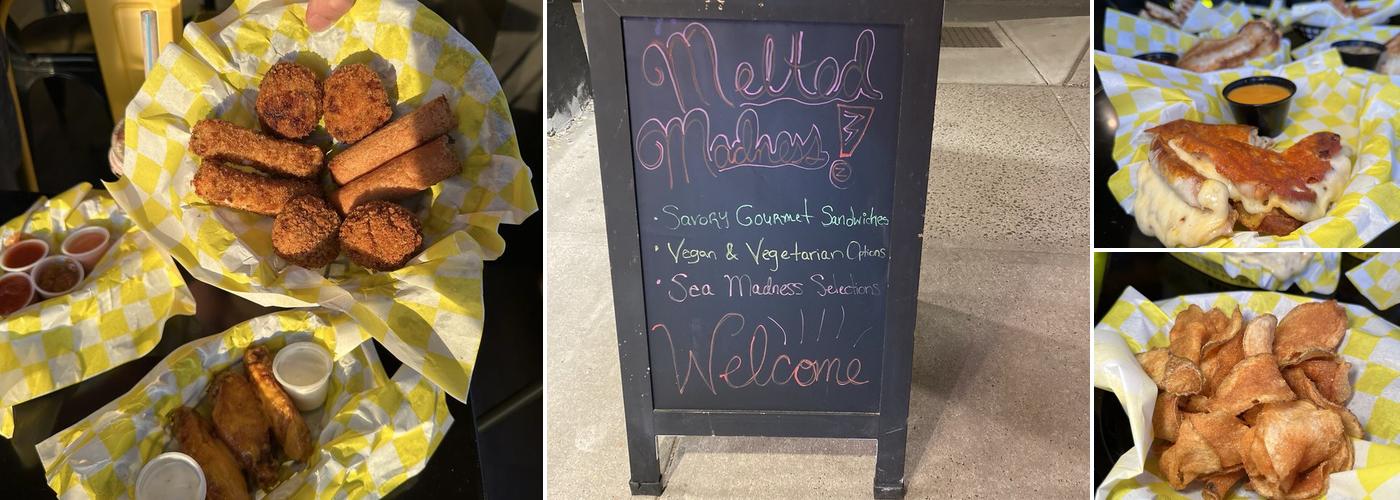 Melted
Madness!
• Savory Gourmet Sandwiches
• Vegan & Vegetarian Options
• Sea Madness Selections
Welcome